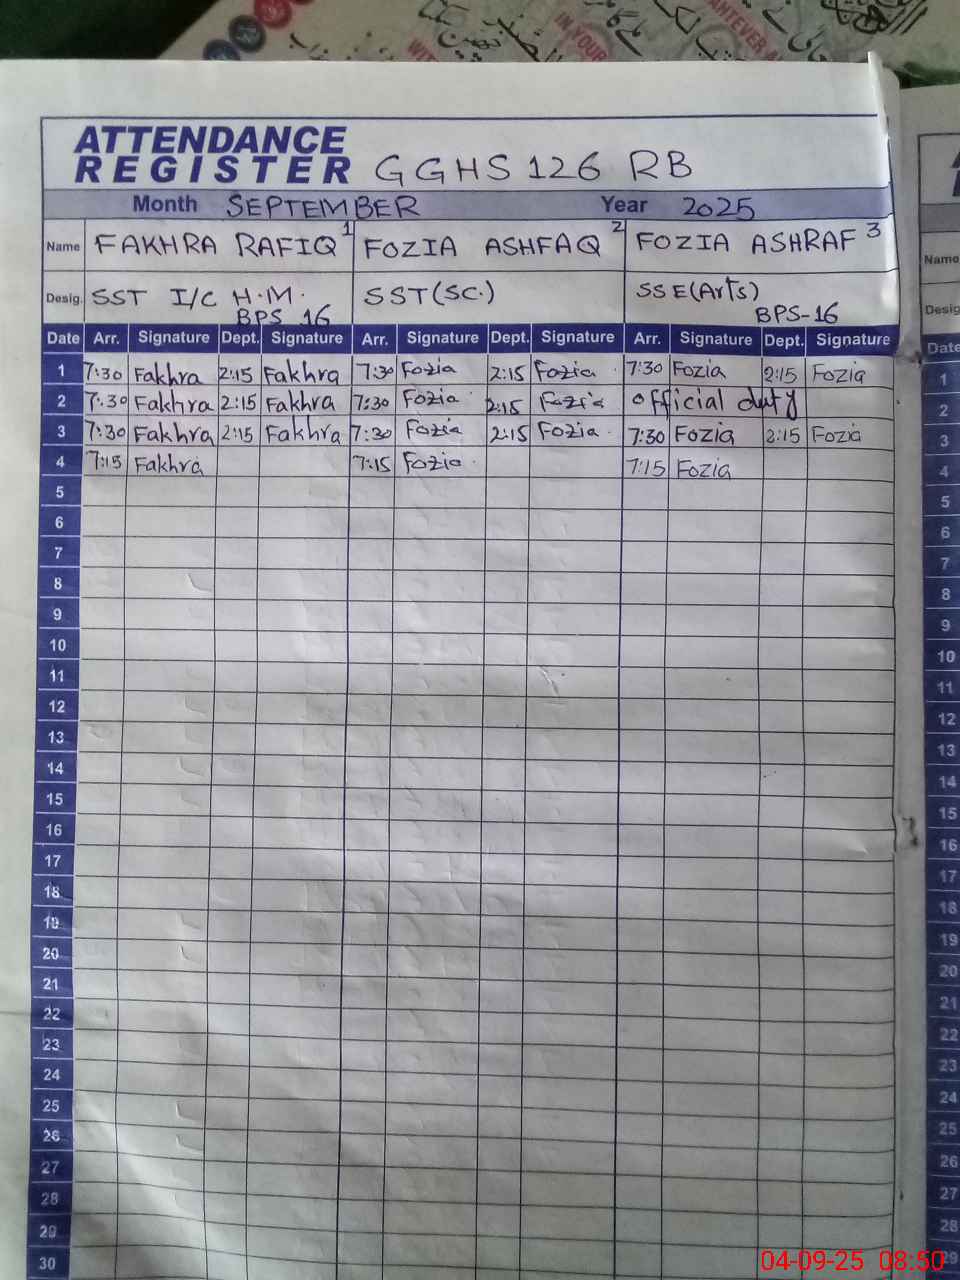 ANTEVER A
IN YOUR
WIT
ATTENDANCE
REGISTER GGHS 126 RB
Month SEPTEMBER Year 2025
Name FAKHRA RAFIQ 1 FOZIA ASHFAQ 2 FOZIA ASHRAF 3
Desig. SST I/C H.M. BPS 16 SST(SC.) SSE(Arts) BPS-16
Date Arr. Signature Dept. Signature Arr. Signature Dept. Signature Arr. Signature Dept. Signature
1 7:30 Fakhra 2:15 Fakhra 7:30 Fozia 2:15 Fozia 7:30 Fozia 2:15 Fozia
2 7:30 Fakhra 2:15 Fakhra 7:30 Fozia 2:15 Fozia official duty
3 7:30 Fakhra 2:15 Fakhra 7:30 Fozia 2:15 Fozia 7:30 Fozia 2:15 Fozia
4 7:15 Fakhra 7:15 Fozia 7:15 Fozia
5
6
7
8
9
10
11
12
13
14
15
16
17
18
19
20
21
22
23
24
25
26
27
28
29
30
Name
Desig
Date
1
2
3
4
5
6
7
8
9
10
11
12
13
14
15
16
17
18
19
20
21
22
23
24
25
26
27
28
29
04-09-25 08:50